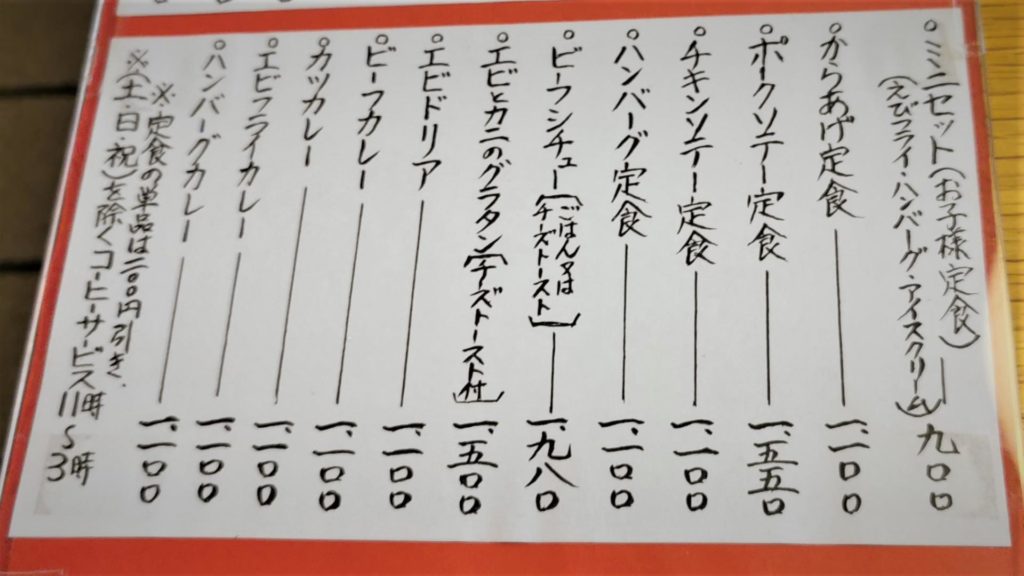 ○ミニセット(お子様定食)― 九〇〇
(えびフライ・ハンバーグ・アイスクリーム)
○からあげ定食 ― 一、一〇〇
○ポークソテー定食 ― 一、五五〇
○チキンソテー定食 ― 一、一〇〇
○ハンバーグ定食 ― 一、一〇〇
○ビーフシチュー〔ごはん又はチーズトースト〕― 一、九八〇
○エビとカニのグラタン〔チーズトースト付〕一、五〇〇
○エビドリア ― 一、一〇〇
○ビーフカレー ― 一、一〇〇
○カツカレー ― 一、一〇〇
○エビフライカレー ― 一、一〇〇
○ハンバーグカレー ― 一、一〇〇
※定食の単品は二〇〇円引き.
※(土・日・祝)を除くコーヒーサービス11時～3時